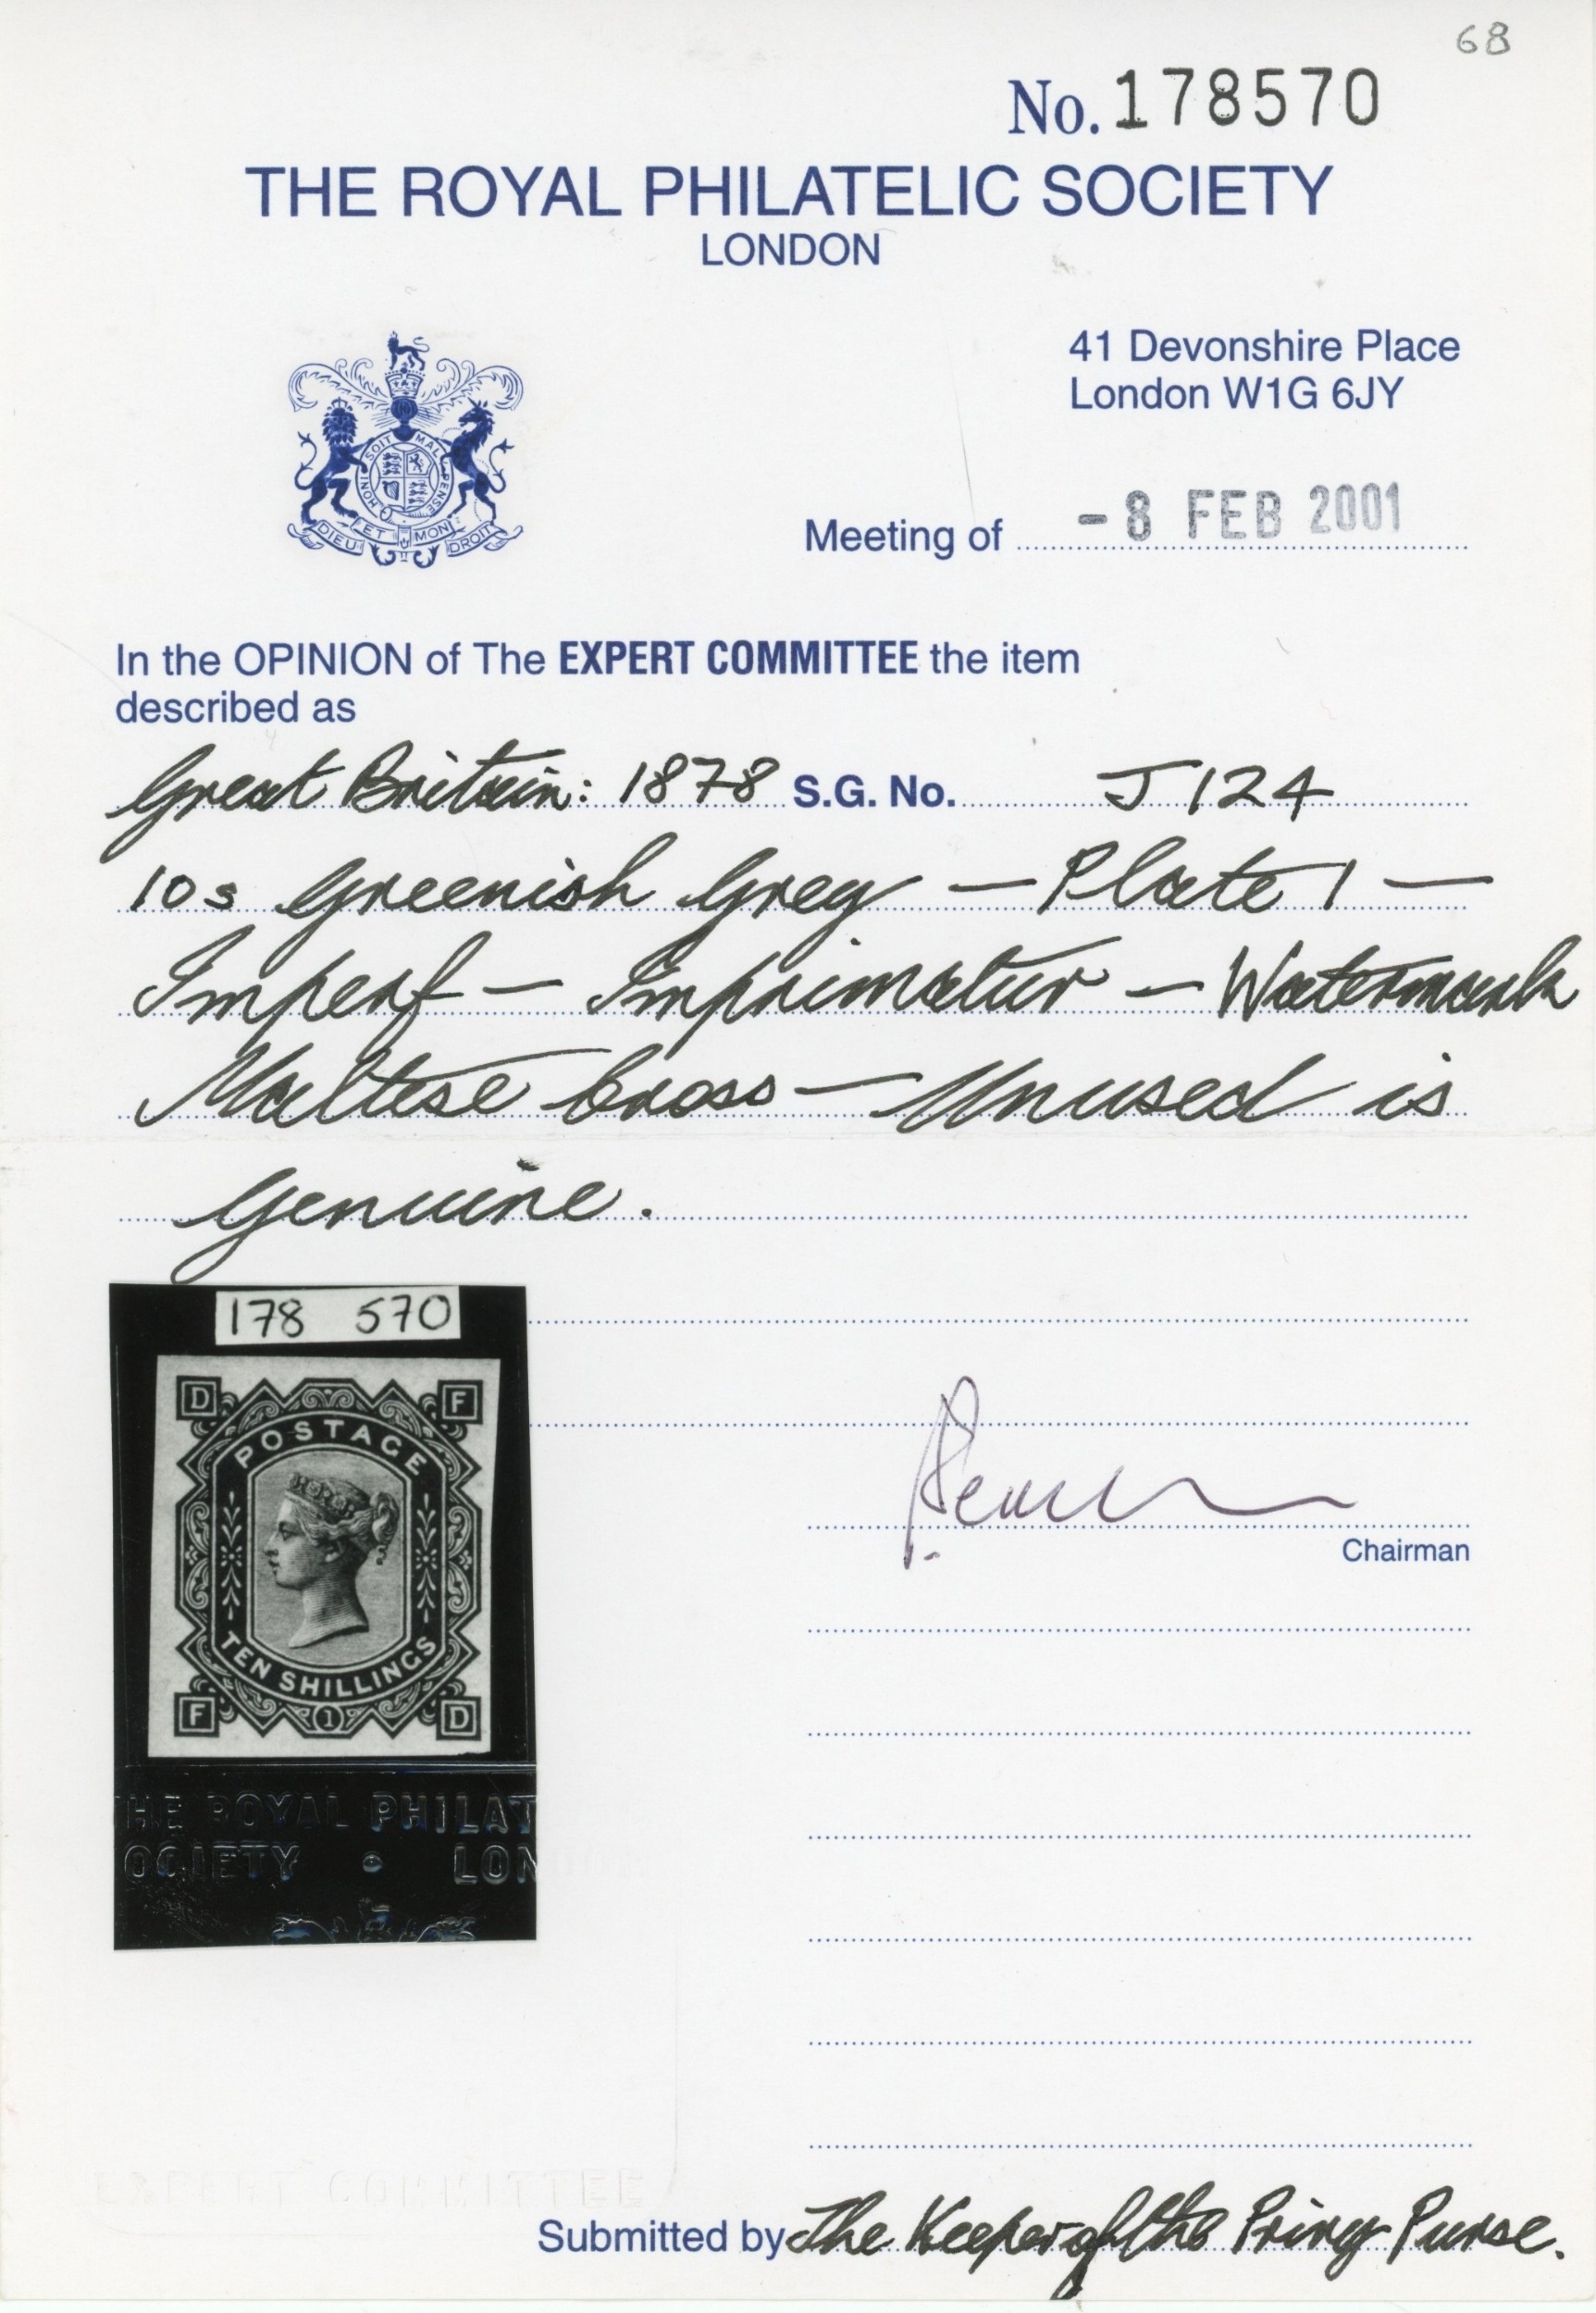 68
No. 178570
THE ROYAL PHILATELIC SOCIETY
LONDON
41 Devonshire Place
London W1G 6JY
HONI SOIT MAL PENSE
DIEU ET MON DROIT
Meeting of - 8 FEB 2001
In the OPINION of The EXPERT COMMITTEE the item
described as
Great Britain: 1878 S.G. No. J124
10s Greenish Grey — Plate 1 —
Imperf — Imprimatur — Watermark
Maltese Cross — Unused is
Genuine.
178 570
D F
POSTAGE
TEN SHILLINGS
F 1 D
THE ROYAL PHILAT
OCIETY • LON
Chairman
EXPERT COMMITTEE
Submitted by The Keeper of the Privy Purse.